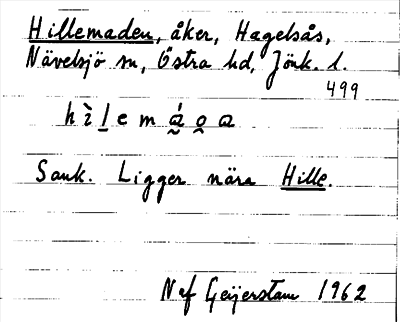 Hillemaden, åker, Hagelsås,
Nävelsjö sn, Östra hd, Jönk. l.
499
h ì l e m á̰ o̭ a
Sank. Ligger nära Hille.
N af Geijerstam 1962